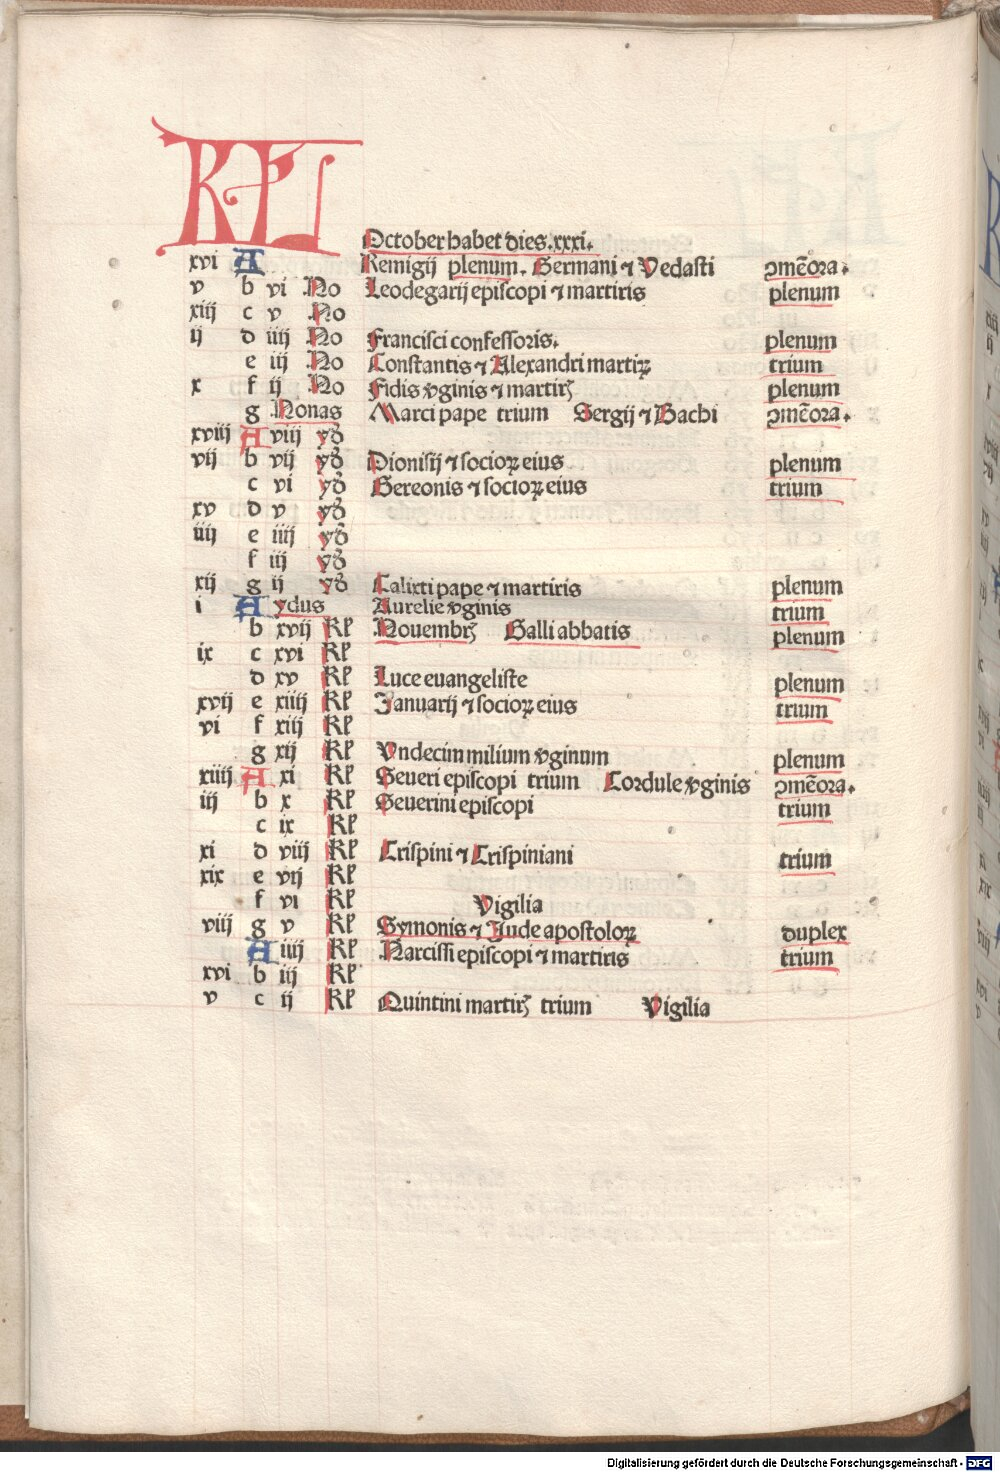 KL
October habet dies.xxxi.
xvi A Remigij plenum. Germani ⁊ Vedasti ↄmẽora.
v b vi No Leodegarij episcopi ⁊ martiris plenum
xiij c v No
ij d iiij No Francisci confessoris. plenum
e iij No Constantis ⁊ Alexandri martiꝝ trium
x f ij No Fidis v̾ginis ⁊ martirꝭ plenum
g Nonas Marci pape trium Sergij ⁊ Bachi ↄmẽora.
xviij A viij yđ
vij b vij yđ Dionisij ⁊ socioꝝ eius plenum
c vi yđ Gereonis ⁊ socioꝝ eius trium
xv d v yđ
iiij e iiij yđ
f iij yđ
xij g ij yđ Calixti pape ⁊ martiris plenum
i A ydus Aurelie v̾ginis trium
b xvij Kł Nouembrꝭ Galli abbatis plenum
ix c xvi Kł
d xv Kł Luce euangeliste plenum
xvij e xiiij Kł Januarij ⁊ socioꝝ eius trium
vi f xiij Kł
g xij Kł Vndecim milium v̾ginum plenum
xiiij A xi Kł Seueri episcopi trium Cordule v̾ginis ↄmẽora.
iij b x Kł Seuerini episcopi trium
c ix Kł
xi d viij Kł Crispini ⁊ Crispiniani trium
xix e vij Kł
f vi Kł Vigilia
viij g v Kł Symonis ⁊ Jude apostoloꝝ duplex
A iiij Kł Narcissi episcopi ⁊ martiris trium
xvi b iij Kł
v c ij Kł Quintini martirꝭ trium Vigilia
Digitalisierung gefördert durch die Deutsche Forschungsgemeinschaft - DFG